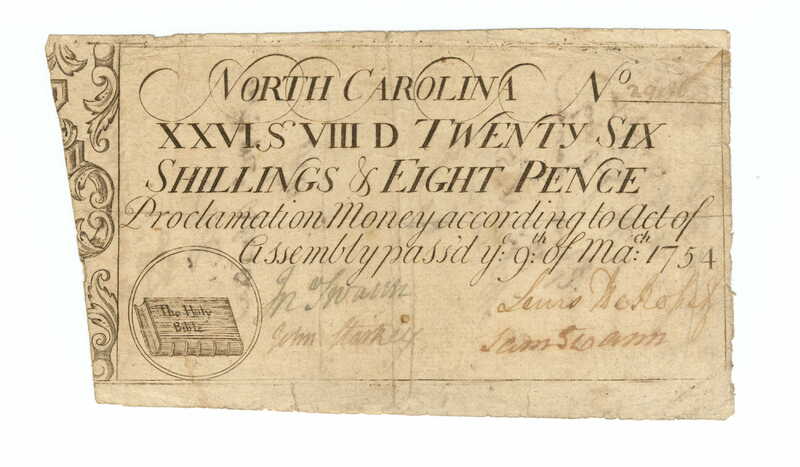 NORTH CAROLINA No
XXVI.S VIII D TWENTY SIX
SHILLINGS & EIGHT PENCE
Proclamation Money according to Act of
Assembly pass'd ye: 9th: of Ma:ch 1754
The Holy
Bible
Jno Swann
John Starkey
Lewis De Rosset
Sam Swann